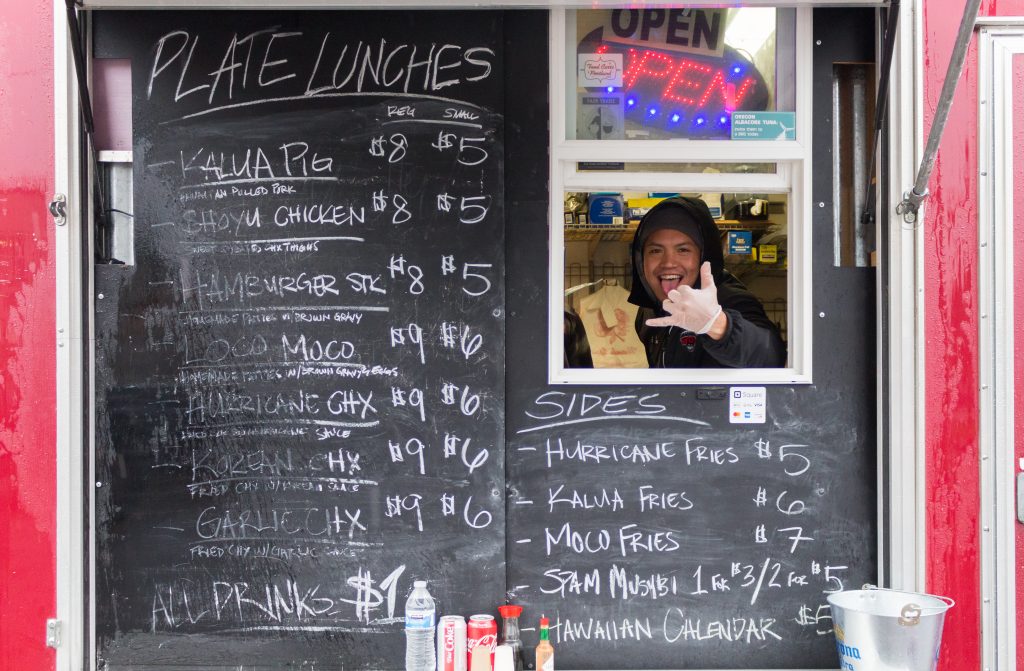 PLATE LUNCHES
REG SMALL
- KALUA PIG $8 $5
PULLED PORK
- SHOYU CHICKEN $8 $5
CHX THIGHS
- HAMBURGER STK $8 $5
HOMEMADE PATTIES W/ BROWN GRAVY
- LOCO MOCO $9 $6
HOMEMADE PATTIES W/ BROWN GRAVY & EGGS
- HURRICANE CHX $9 $6
SAUCE
- KOREAN CHX $9 $6
FRIED CHX W/ KOREAN SAUCE
- GARLIC CHX $9 $6
FRIED CHX W/ GARLIC SAUCE
ALL DRINKS $1
OPEN
OPEN
OREGON
ALBACORE TUNA
FAIR TRADE
SIDES
Square
VISA
- HURRICANE FRIES $5
- KALUA FRIES $6
- MOCO FRIES $7
- SPAM MUSUBI 1 FOR $3/2 FOR $5
- HAWAIIAN CALENDAR $5
Corona
Coke